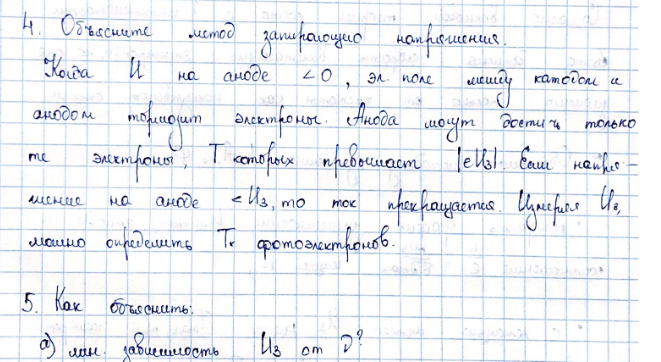 4. Объясните метод запирающего напряжения.
Когда U на аноде <0, эл. поле между катодом и
анодом тормозит электроны. Анода могут достичь только
те электроны, T которых превышает |eUз|. Если напря-
жение на аноде <Uз, то ток прекращается. Измеряя Uз,
можно определить Tк фотоэлектронов.
5. Как объяснить:
а) лин. зависимость Uз от ν?